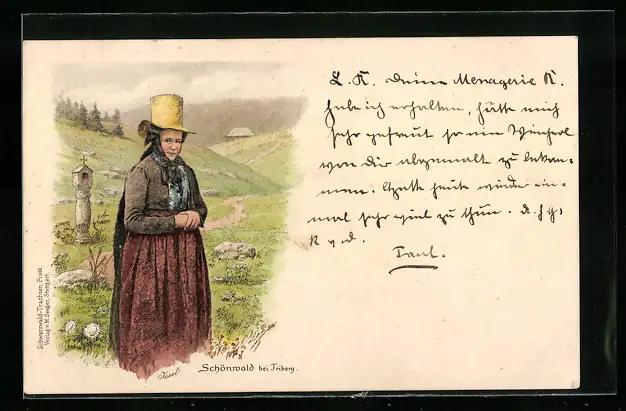 L. K. Deine Menagerie K.
habe ich erhalten, hätte mich
sehr gefreut so ein
von dir abgemalt zu bekom-
men. Hatte heute wieder ein-
mal sehr viel zu thun.
K
Schönwald bei Triberg.
Schwarzwald-Trachten, Postk.
Verlag v. M. Seeger, Stuttgart.